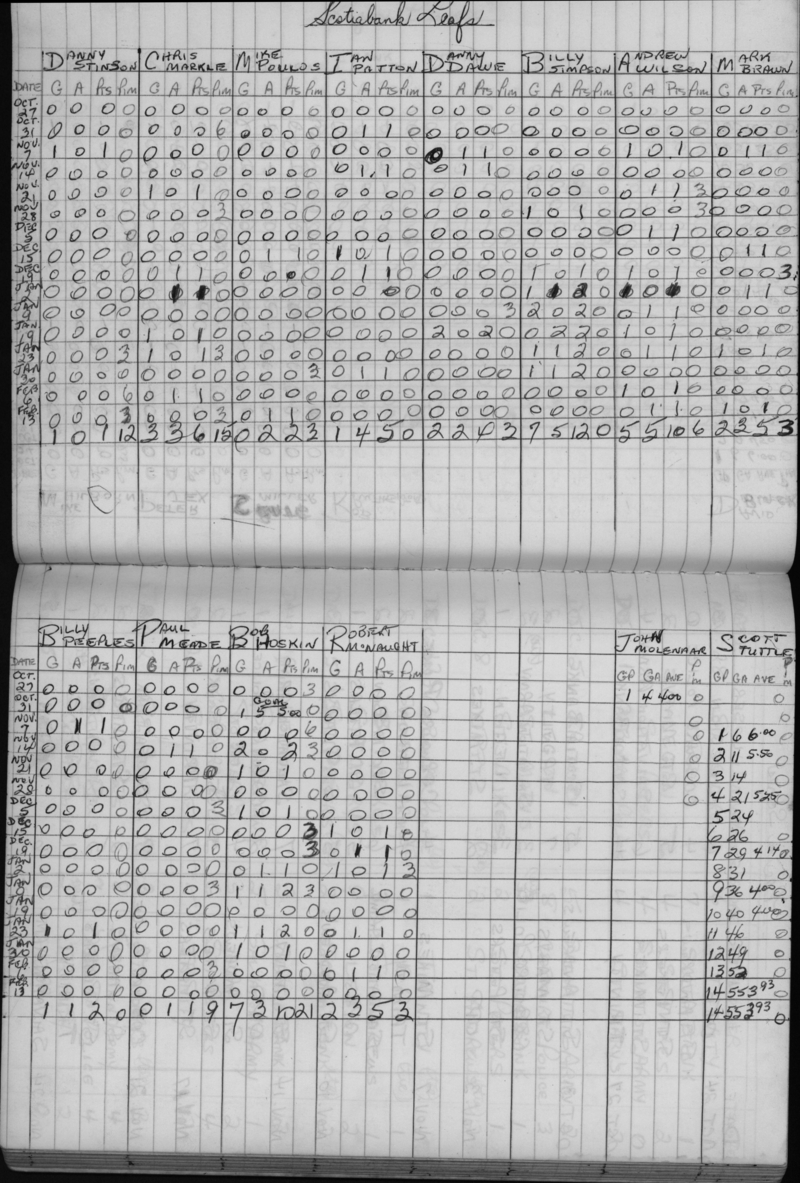 Scotiabank Leafs
DANNY STINSON CHRIS MARKLE MIKE POULOS IAN PATTON DANNY DAWE BILLY SIMPSON ANDREW WILSON MARK BRAWN
DATE G A Pts Pim G A Pts Pim G A Pts Pim G A Pts Pim G A Pts Pim G A Pts Pim G A Pts Pim G A Pts Pim
OCT. 27 0 0 0 0 0 0 0 0 0 0 0 0 0 0 0 0 0 0 0 0 0 0 0 0 0 0 0 0 0 0 0 0
OCT. 31 0 0 0 0 0 0 0 6 0 0 0 0 0 1 1 0 0 0 0 0 0 0 0 0 0 0 0 0 0 0 0 0
NOV. 7 1 0 1 0 0 0 0 0 0 0 0 0 0 0 0 0 0 1 1 0 0 0 0 0 1 0 1 0 0 1 1 0
NOV. 14 0 0 0 0 0 0 0 0 0 0 0 0 0 1 1 0 0 1 1 0 0 0 0 0 0 0 0 0 0 0 0 0
NOV. 21 0 0 0 0 1 0 1 0 0 0 0 0 0 0 0 0 0 0 0 0 0 0 0 0 0 1 1 3 0 0 0 0
NOV. 28 0 0 0 0 0 0 0 3 0 0 0 0 0 0 0 0 0 0 0 0 1 0 1 0 0 0 0 3 0 0 0 0
DEC 5 0 0 0 0 0 0 0 0 0 0 0 0 0 0 0 0 0 0 0 0 0 0 0 0 0 1 1 0 0 0 0 0
DEC 15 0 0 0 0 0 0 0 0 0 1 1 0 1 0 1 0 0 0 0 0 0 0 0 0 0 0 0 0 0 1 1 0
DEC 19 0 0 0 0 0 1 1 0 0 0 0 0 0 1 1 0 0 0 0 0 1 0 1 0 1 0 1 0 0 0 0 3
JAN 2 0 0 0 0 0 1 1 0 0 0 0 0 0 0 0 0 0 0 0 0 1 1 2 0 1 0 1 0 0 1 1 0
JAN 9 0 0 0 0 0 0 0 0 0 0 0 0 0 0 0 0 0 0 0 3 2 0 2 0 0 1 1 0 0 0 0 0
JAN 19 0 0 0 0 1 0 1 0 0 0 0 0 0 0 0 0 2 0 2 0 0 2 2 0 1 0 1 0 0 0 0 0
JAN 23 0 0 0 3 1 0 1 3 0 0 0 0 0 0 0 0 0 0 0 0 1 1 2 0 0 1 1 0 1 0 1 0
JAN 30 0 0 0 0 0 0 0 0 0 0 0 3 0 1 1 0 0 0 0 0 1 1 2 0 0 0 0 0 0 0 0 0
FEB 6 0 0 0 6 0 1 1 0 0 0 0 0 0 0 0 0 0 0 0 0 0 0 0 0 1 0 1 0 0 0 0 0
FEB. 13 0 0 0 3 0 0 0 3 0 1 1 0 0 0 0 0 0 0 0 0 0 0 0 0 0 1 1 0 1 0 1 0
1 0 1 12 3 3 6 15 0 2 2 3 1 4 5 0 2 2 4 3 7 5 12 0 5 5 10 6 2 3 5 3
BILLY PEEPLES PAUL MEADE BOB HOSKIN ROBERT MCNAUGHT JOHN MOLENAAR SCOTT TUTTLE
DATE G A Pts Pim G A Pts Pim G A Pts Pim G A Pts Pim GP GA AVE Pim GP GA AVE Pim
OCT. 27 0 0 0 0 0 0 0 0 0 0 0 3 0 0 0 0 1 4 4.00 0
OCT. 31 0 0 0 0 0 0 0 0 GOAL 1 5 5.00 0 0 0 0 0 0 0
NOV. 7 0 1 1 0 0 0 0 0 0 0 0 6 0 0 0 0 0 1 6 6.00 0
NOV 14 0 0 0 0 0 1 1 0 2 0 2 3 0 0 0 0 2 11 5.50 0
NOV 21 0 0 0 0 0 0 0 0 1 0 1 0 0 0 0 0 0 3 14 0
NOV 28 0 0 0 0 0 0 0 0 0 0 0 0 0 0 0 0 0 4 21 5.25 0
DEC 5 0 0 0 0 0 0 0 3 1 0 1 0 0 0 0 0 5 24
DEC 15 0 0 0 0 0 0 0 0 0 0 0 3 1 0 1 0 6 26 0
DEC. 19 0 0 0 0 0 0 0 0 0 0 0 3 0 1 1 0 7 29 4.14 0
JAN 2 0 0 0 0 0 0 0 0 0 1 1 0 1 0 1 3 8 31 0
JAN 9 0 0 0 0 0 0 0 3 1 1 2 3 0 0 0 0 9 36 4.00 0
JAN 19 0 0 0 0 0 0 0 0 0 0 0 0 0 0 0 0 10 40 4.00 0
JAN 23 1 0 1 0 0 0 0 0 1 1 2 0 0 1 1 0 11 46 0
JAN 30 0 0 0 0 0 0 0 0 1 0 1 0 0 0 0 0 12 49 0
FEB 6 0 0 0 0 0 0 0 3 0 0 0 0 0 1 1 0 13 52 0
FEB 13 0 0 0 0 0 0 0 0 0 0 0 0 0 0 0 0 14 55 3.93 0
1 1 2 0 0 1 1 9 7 3 10 21 2 3 5 3 14 55 3.93 0